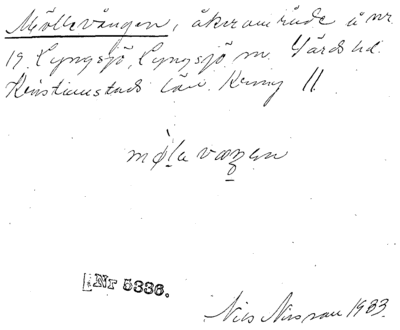 Möllevången, åkerområde å nr
19 Lyngsjö, Lyngsjö sn. Gärds hd.
Kristianstads län.
mø̀la vaŋen
Nr 5336.
Nils Nilsson 1983.